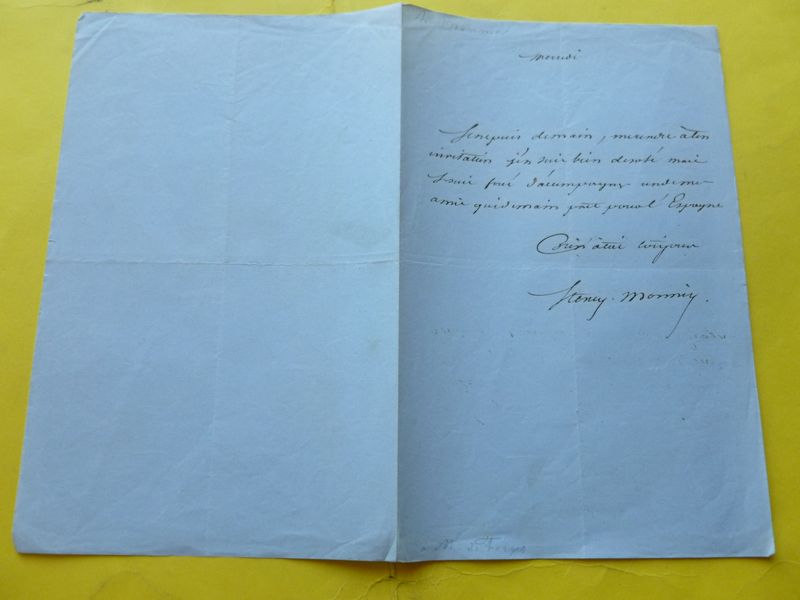 mercredi
Je ne puis demain, me rendre à ton
invitation j'en suis bien desolé mais
Je suis forcé d'accompagner un de mes
amis qui demain part pour l'Espagne
à toi toujours
Henry Monnier.
à M. De Forges